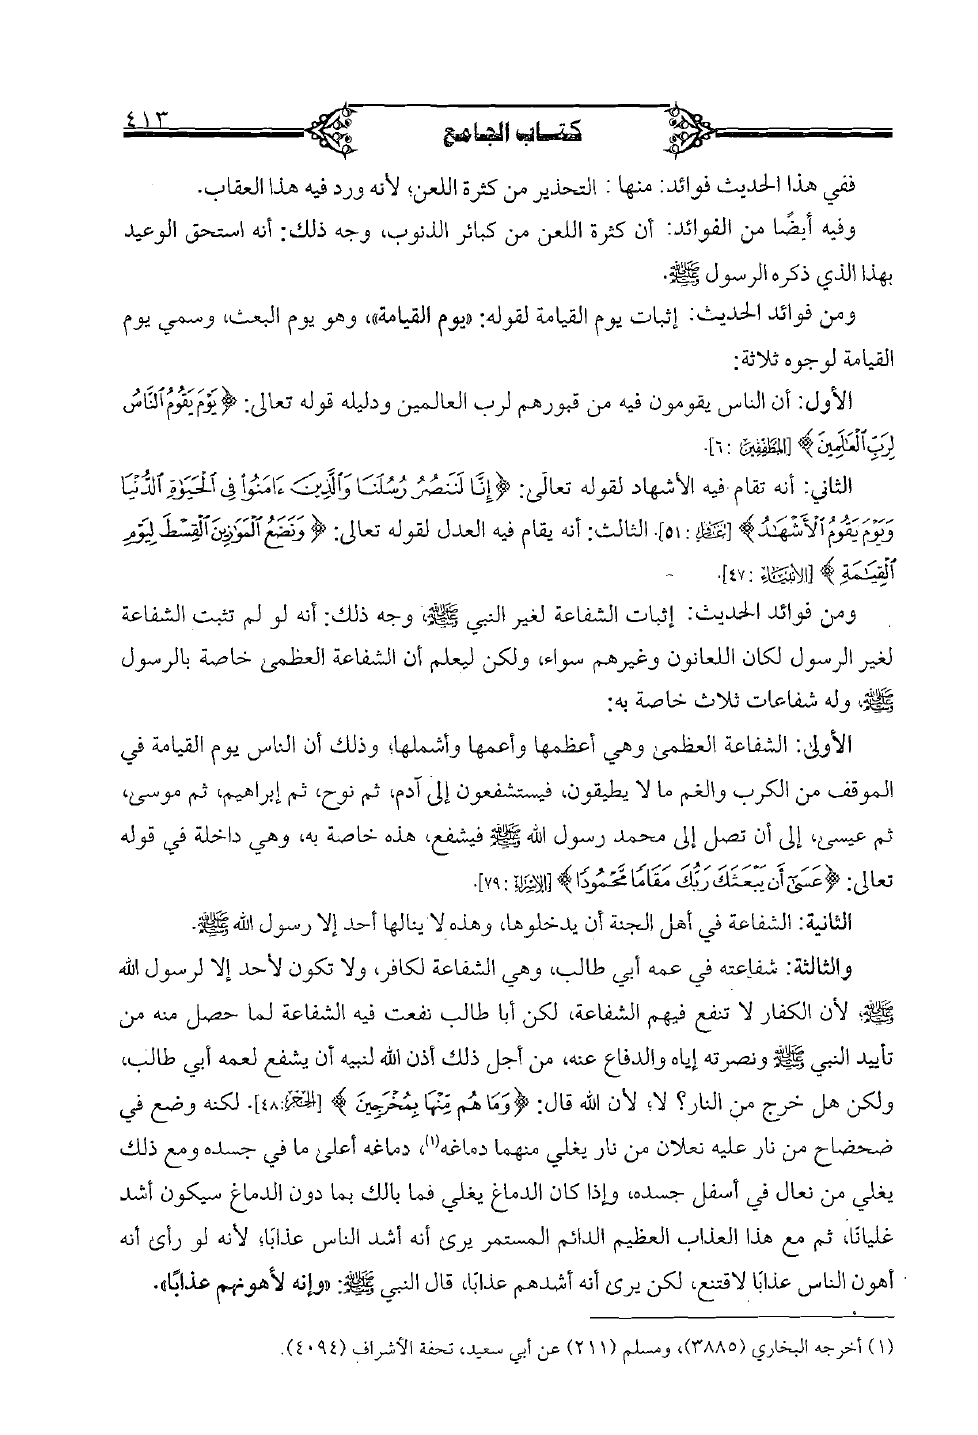 ٤١٣
كتاب الجامع
ففي هذا الحديث فوائد: منها: التحذير من كثرة اللعن؛ لأنه ورد فيه هذا العقاب.
وفيه أيضًا من الفوائد: أن كثرة اللعن من كبائر الذنوب، وجه ذلك: أنه استحق الوعيد
بهذا الذي ذكره الرسول ﷺ.
ومن فوائد الحديث: إثبات يوم القيامة لقوله: «يوم القيامة»، وهو يوم البعث، وسمي يوم
القيامة لوجوه ثلاثة:
الأول: أن الناس يقومون فيه من قبورهم لرب العالمين ودليله قوله تعالى: ﴿يَوْمَ يَقُومُ ٱلنَّاسُ
لِرَبِّ ٱلْعَٰلَمِينَ﴾ [المطففين: ٦].
الثاني: أنه تقام فيه الأشهاد لقوله تعالى: ﴿إِنَّا لَنَنصُرُ رُسُلَنَا وَٱلَّذِينَ ءَامَنُوا۟ فِى ٱلْحَيَوٰةِ ٱلدُّنْيَا
وَيَوْمَ يَقُومُ ٱلْأَشْهَٰدُ﴾ [غافر: ٥١]. الثالث: أنه يقام فيه العدل لقوله تعالى: ﴿وَنَضَعُ ٱلْمَوَٰزِينَ ٱلْقِسْطَ لِيَوْمِ
ٱلْقِيَٰمَةِ﴾ [الأنبياء: ٤٧].
ومن فوائد الحديث: إثبات الشفاعة لغير النبي ﷺ، وجه ذلك: أنه لو لم تثبت الشفاعة
لغير الرسول لكان اللعانون وغيرهم سواء، ولكن ليعلم أن الشفاعة العظمى خاصة بالرسول
ﷺ، وله شفاعات ثلاث خاصة به:
الأولى: الشفاعة العظمى وهي أعظمها وأعمها وأشملها؛ وذلك أن الناس يوم القيامة في
الموقف من الكرب والغم ما لا يطيقون، فيستشفعون إلى آدم، ثم نوح، ثم إبراهيم، ثم موسى،
ثم عيسى، إلى أن تصل إلى محمد رسول الله ﷺ فيشفع، هذه خاصة به، وهي داخلة في قوله
تعالى: ﴿عَسَىٰٓ أَن يَبْعَثَكَ رَبُّكَ مَقَامًا مَّحْمُودًا﴾ [الإسراء: ٧٩].
الثانية: الشفاعة في أهل الجنة أن يدخلوها، وهذه لا ينالها أحد إلا رسول الله ﷺ.
والثالثة: شفاعته في عمه أبي طالب، وهي الشفاعة لكافر، ولا تكون لأحد إلا لرسول الله
ﷺ، لأن الكفار لا تنفع فيهم الشفاعة، لكن أبا طالب نفعت فيه الشفاعة لما حصل منه من
تأييد النبي ﷺ ونصرته إياه والدفاع عنه، من أجل ذلك أذن الله لنبيه أن يشفع لعمه أبي طالب،
ولكن هل خرج من النار؟ لا؛ لأن الله قال: ﴿وَمَا هُم مِّنْهَا بِمُخْرَجِينَ﴾ [الحجر: ٤٨]. لكنه وضع في
ضحضاح من نار عليه نعلان من نار يغلي منهما دماغه(١)، دماغه أعلى ما في جسده ومع ذلك
يغلي من نعال في أسفل جسده، وإذا كان الدماغ يغلي فما بالك بما دون الدماغ سيكون أشد
غليانًا، ثم مع هذا العذاب العظيم الدائم المستمر يرى أنه أشد الناس عذابًا؛ لأنه لو رأى أنه
أهون الناس عذابًا لاقتنع، لكن يرى أنه أشدهم عذابًا، قال النبي ﷺ: «وإنه لأهونهم عذابًا».
(١) أخرجه البخاري (٣٨٨٥)، ومسلم (٢١١) عن أبي سعيد، تحفة الأشراف (٤٠٩٤).